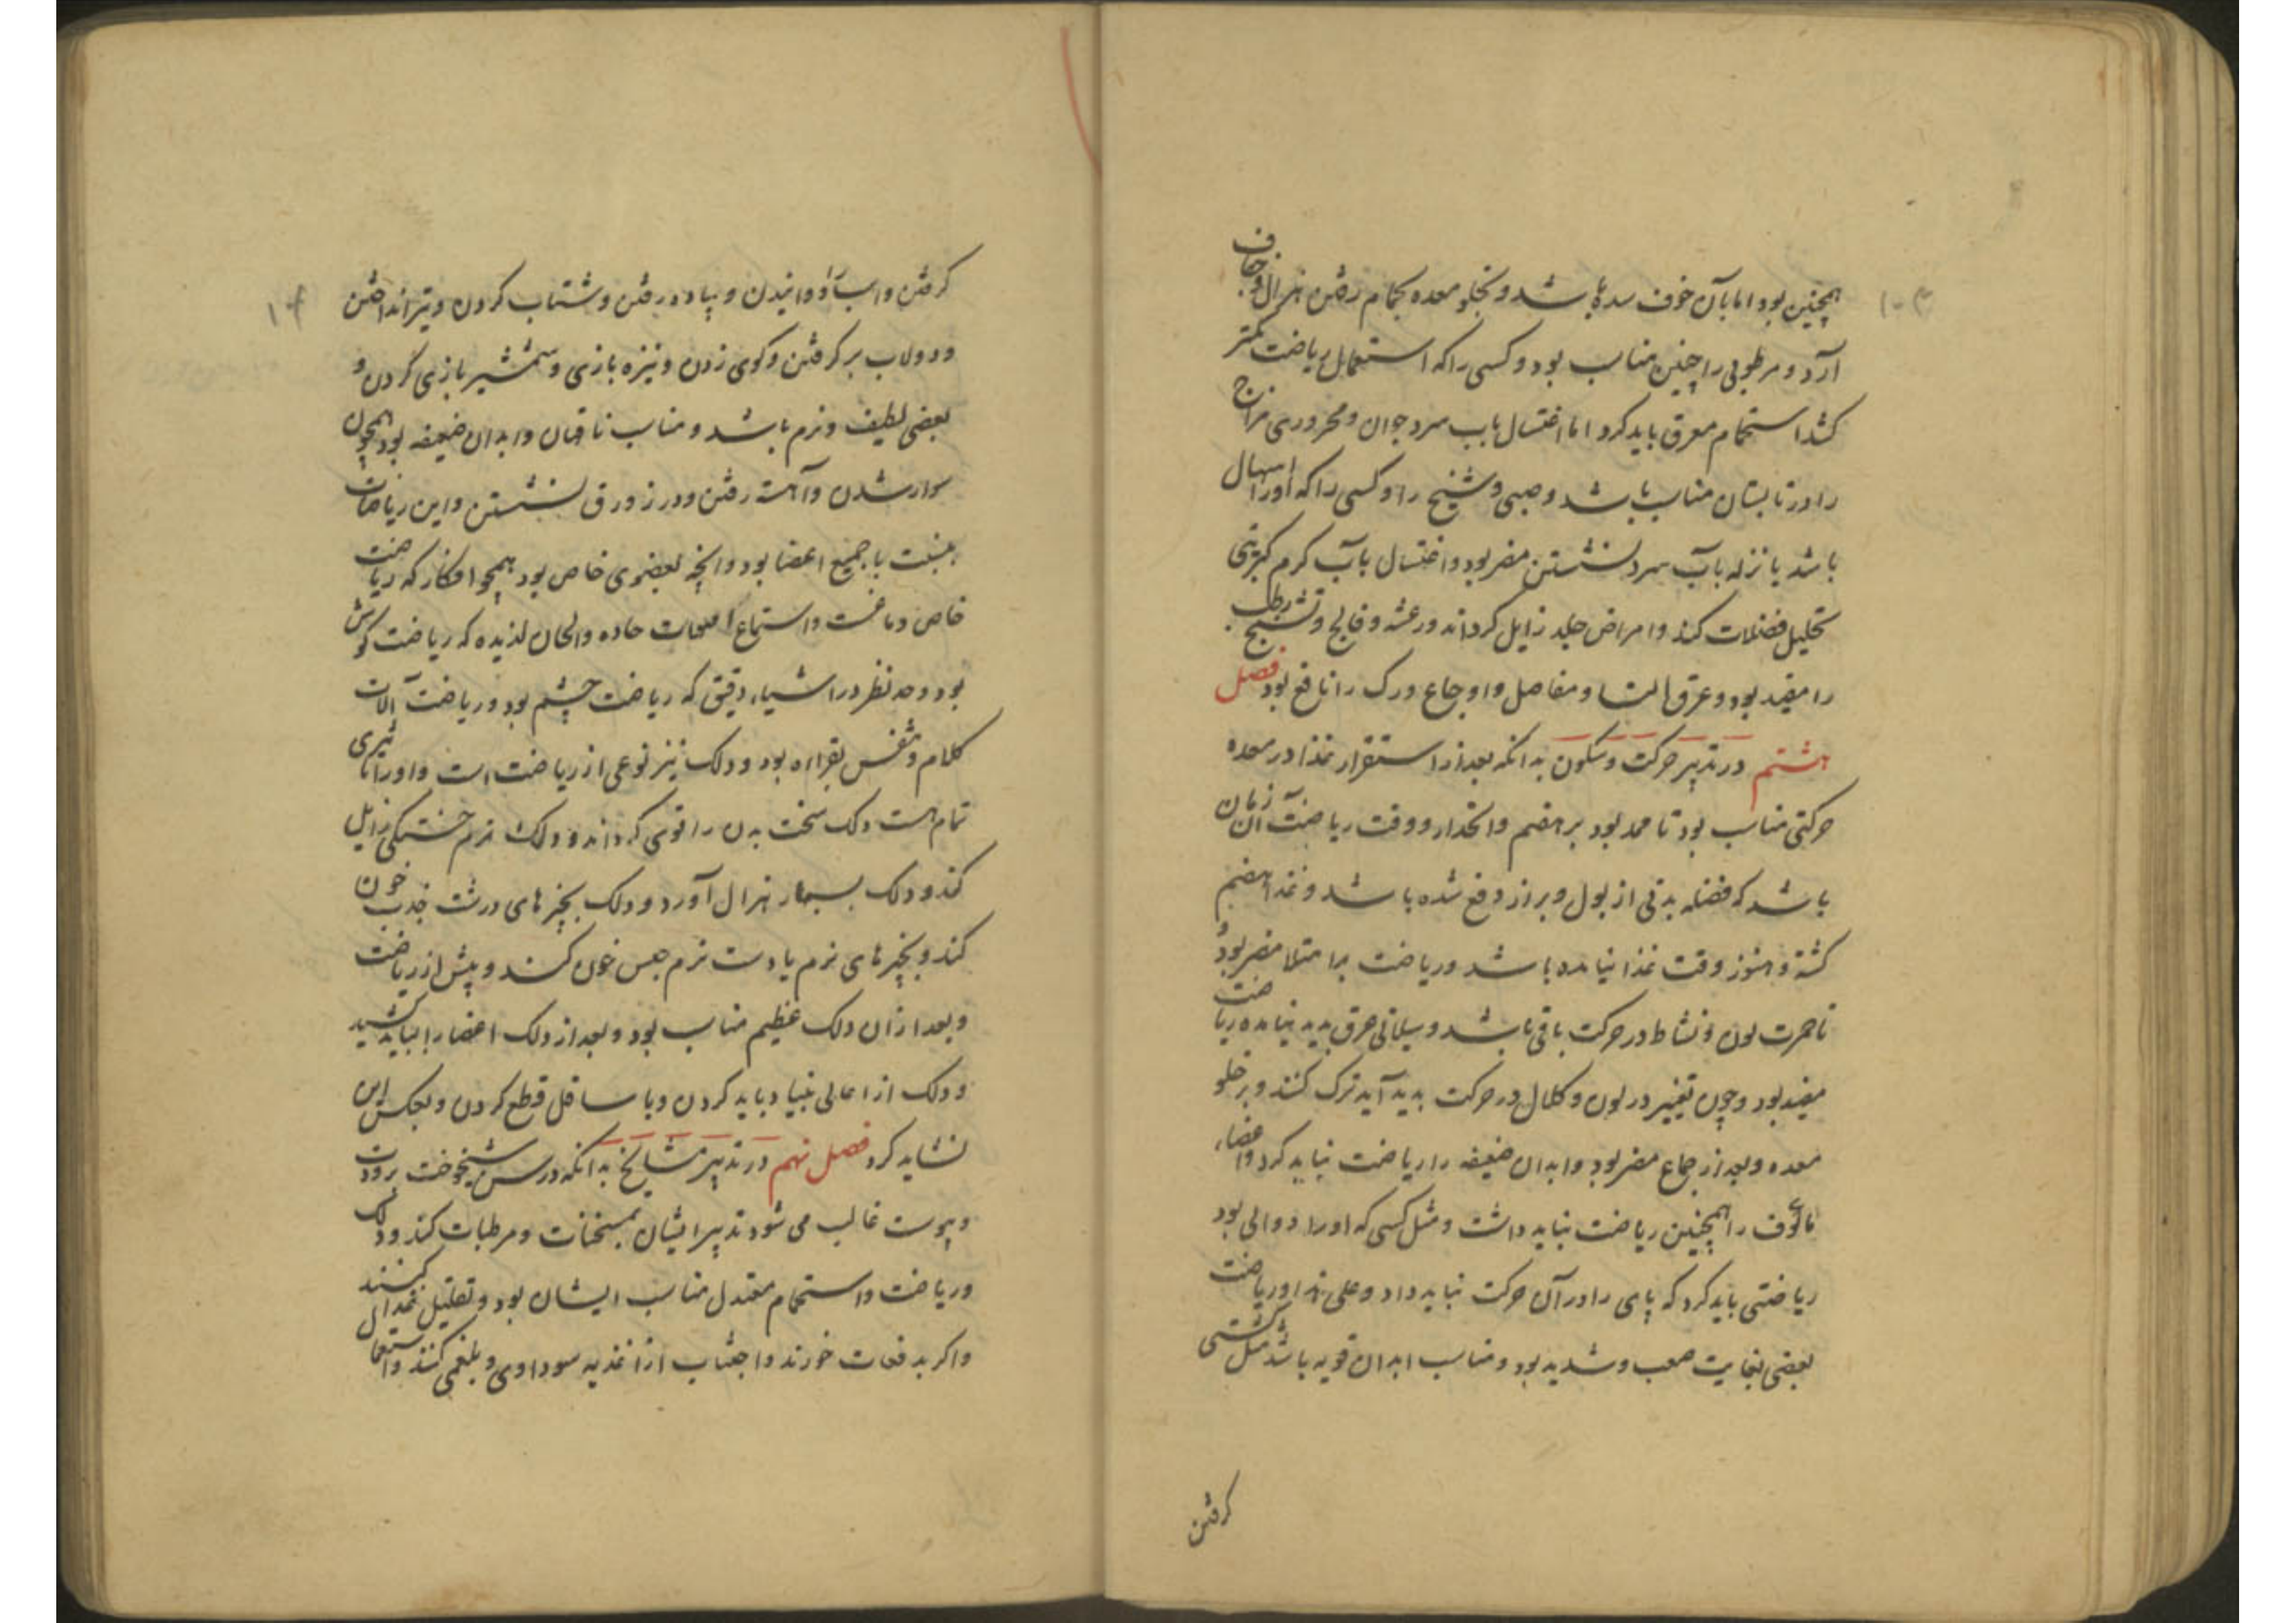 همچنین بود اما بآن خوف سده باشد و بخلو معده بحمام رفتن هزال و جفاف
آرد و مرطوبی را چنین مناسب بود و کسی را که استعمال ریاضت کمتر
کند استحمام معرق باید کرد اما اغتسال بآب سرد جوان و محروری مزاج
را در تابستان مناسب باشد و صبی و شیخ را و کسی را که او را اسهال
باشد یا نزله بآب سرد نشستن مضر بود و اغتسال بآب کرم کبریتی
تحلیل فضلات کند و امراض جلد زایل کرداند و رعشه و فالج و تشنج رطب
را مفید بود و عرق النسا و مفاصل و اوجاع ورک را نافع بود فصل
هشتم در تدبیر حرکت و سکون بدانکه بعد از استقرار غذا در معده
حرکتی مناسب بود تا ممد بود بر هضم و انحدار و وقت ریاضت آن زمان
باشد که فضله بدنی از بول و براز دفع شده باشد و غذا هضم
کشته و هنوز وقت غذا نیامده باشد و ریاضت بر امتلا مضر بود و
تا حمرت لون و نشاط در حرکت باقی باشد و سیلانی عرق بدید نیامده ریاضت
مفید بود و چون تغییر در لون و کلال در حرکت بدید آید ترک کنند و بر خلو
معده و بعد از جماع مضر بود و ابدان ضعیفه را ریاضت نباید کرد و اعضاء
مأوف را همچنین ریاضت نباید داشت و مثل کسی که او را دوالی بود
ریاضتی باید کرد که پای را در آن حرکت نباید داد و علی هذا و ریاضت
بعضی بغایت صعب و شدید بود و مناسب ابدان قویه باشد مثل کشتی
کرفتن
کرفتن و اسب دوانیدن و پیاده رفتن و شتاب کردن و تیر انداختن
و دولاب بر کرفتن و کوی زدن و نیزه بازی و شمشیر بازی کردن و
بعضی لطیف و نرم باشد و مناسب ناقهان و ابدان ضعیفه بود همچون
سوار شدن و آهسته رفتن و در زورق نشستن و این ریاضات
بنسبت با جمیع اعضا بود و آنچه بعضوی خاص بود همچو افکار که ریاضت
خاص دماغست و استماع اصوات حاده و الحان لذیده که ریاضت کوش
بود و حد نظر در اشیاء دقیق که ریاضت چشم بود و ریاضت آلات
کلام و تنفس بقراءه بود و دلک نیز نوعی از ریاضت است و او را تاثیری
تمام هست دلک سخت بدن را قوی کرداند و دلک نرم خستکی زایل
کند و دلک بسیار هزال آورد و دلک بچیزهای درشت جذب خون
کند و بچیزهای نرم یا دست نرم حبس خون کند و پیش از ریاضت
و بعد از آن دلک عظیم مناسب بود و بعد از دلک اعضا را بباید کشید
و دلک از اعالی بنیاد باید کردن و با سافل قطع کردن و بعکس این
نشاید کرد فصل نهم در تدبیر مشایخ بدانکه در سن شیخوخت برودت
و یبوست غالب می شود تدبیر ایشان بمسخنات و مرطبات کنند و دلک
و ریاضت و استحمام معتدل مناسب ایشان بود و تقلیل غذا کنند
و اکر بدفعات خورند و اجتناب از اغذیه سوداوی و بلغمی کنند و استعمال